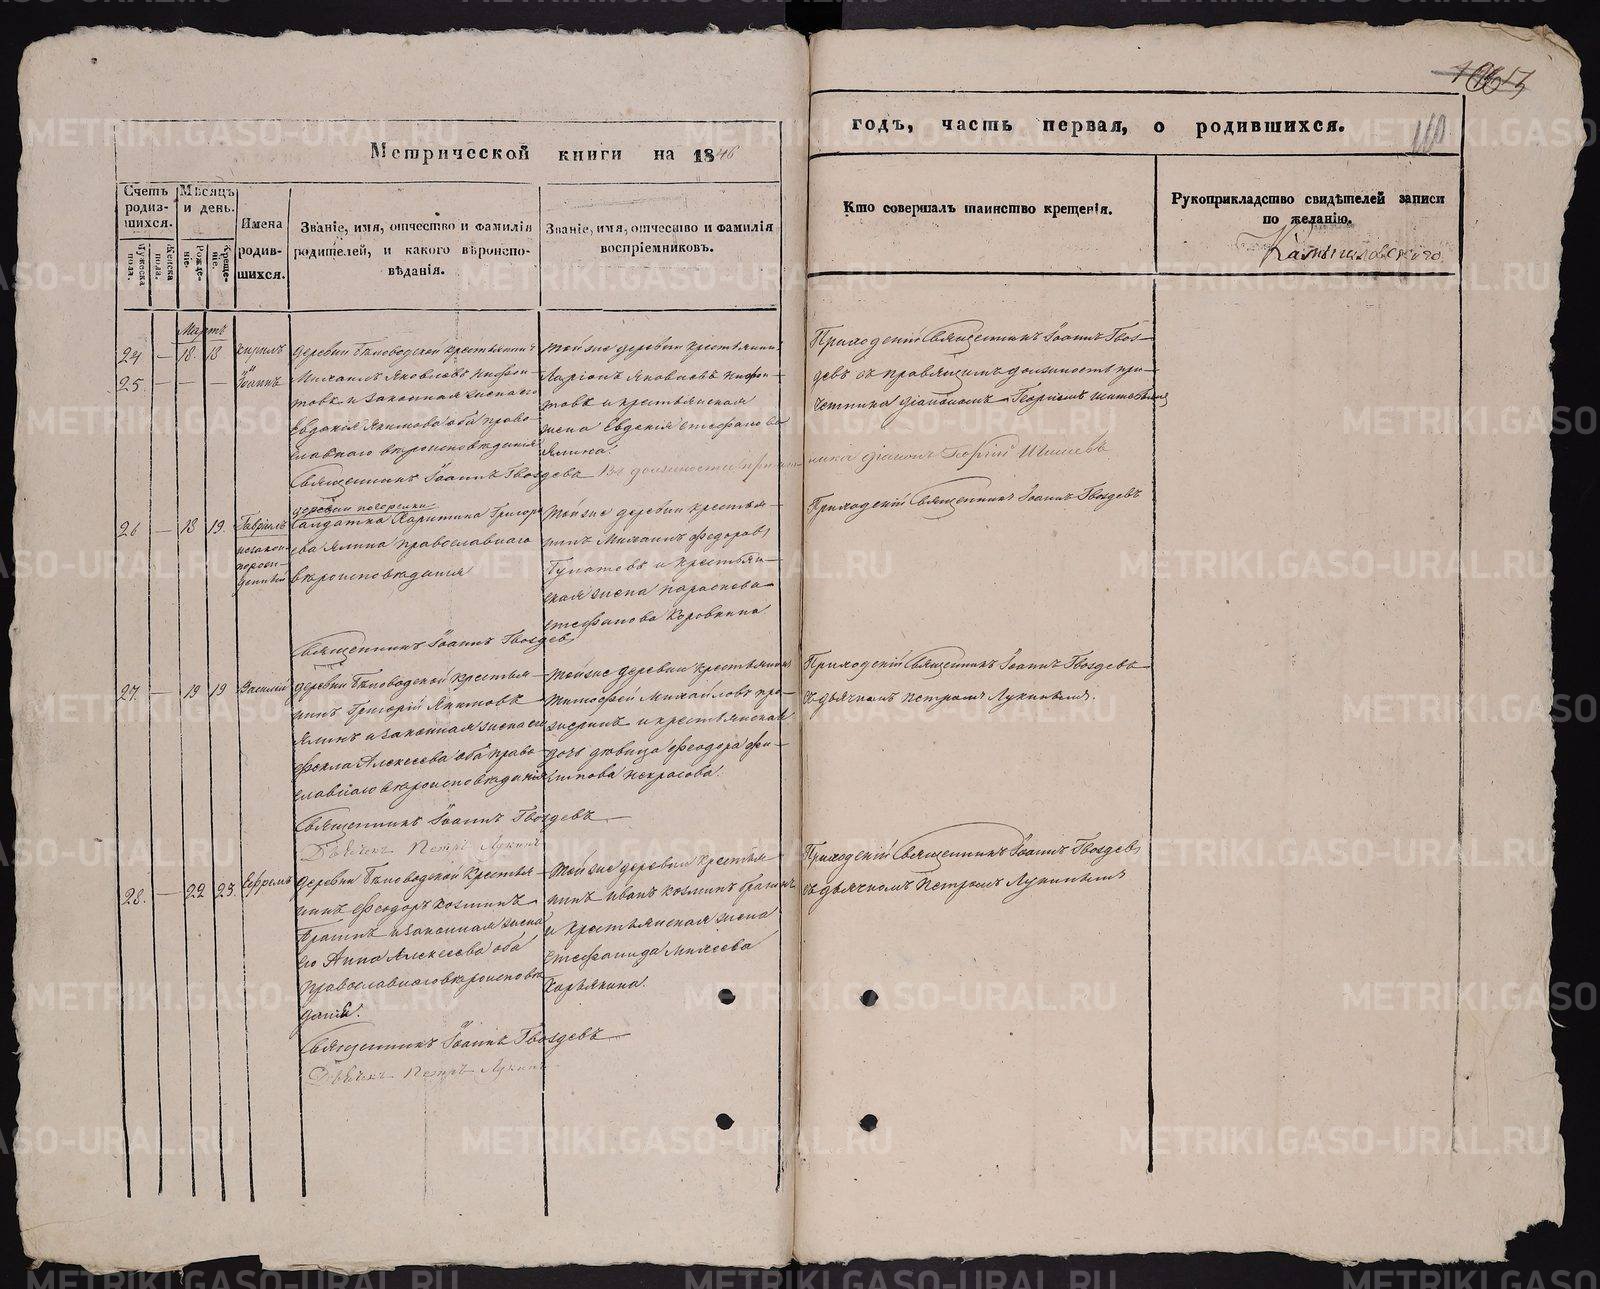 Метрической книги на 1846
годъ, часть первая, о родившихся.
Счетъ родив-шихся.
Мужеска пола.
Женска пола.
Мѣсяцъ и день.
Рожде-ніе.
Креще-ніе.
Имена родив-шихся.
Званіе, имя, отчество и фамилія
родителей, и какого вѣроиспо-
вѣданія.
Званіе, имя, отчество и фамилія
воспріемниковъ.
Кто совершалъ таинство крещенія.
Рукоприкладство свидѣтелей записи
по желанію.
Камышловскаго
Мартъ
24 — 18 18 Кирилъ
25. — — — Іоаннъ
деревни Бѣловодской крестьянинъ
Михаилъ Яковлевъ
и законная жена его
Евдокія Якимова оба право
славнаго вѣроисповѣданія
Священникъ Іоаннъ Гвоздевъ
тойже деревни крестьянинъ
Ларіонъ Яковлевъ
и крестьянская
жена Евдокія Стефанова
Ялина.
Приходскій Священникъ Іоаннъ Гвоз—
девъ съ правящимъ должность при—
четника діакономъ Георгіемъ
26 — 18 19. Гавріилъ
незакон-
норож-
денный
Салдатка Харитина Григорь
ева Ялина православнаго
вѣроисповѣданія
Священникъ Іоаннъ Гвоздевъ
тойже деревни крестья—
нинъ Михаилъ Федоровъ
и крестьян—
ская жена Параскева
Стефанова Коровкина
Приходскій Священникъ Іоаннъ Гвоздевъ
27. — 19 19 Василій
деревни Бѣловодской крестья—
нинъ Григорій Якимовъ
Ялинъ и законная жена его
Фекла Алексѣева оба право
славнаго вѣроисповѣданія
Священникъ Іоаннъ Гвоздевъ
Дьячекъ Петръ Лукинъ
тойже деревни крестьянинъ
Тимофей Михайловъ
и крестьянская
дочь дѣвица Феодора Фи—
липова Некрасова.
Приходскій Священникъ Іоаннъ Гвоздевъ
съ дьячкомъ Петромъ Лукинымъ.
28. — 22 23. Ефремъ
деревни Бѣловодской крестья—
нинъ Феодоръ Козминъ
и законная жена
его Анна Алексѣева оба
православнаго вѣроисповѣ
данія.
Священникъ Іоаннъ Гвоздевъ
Дьячекъ Петръ Лукинъ
тойже деревни крестья—
нинъ Иванъ Козминъ
и крестьянская жена
Стефанида
Приходскій Священникъ Іоаннъ Гвоздевъ
съ дьячкомъ Петромъ Лукинымъ
METRIKI.GASO-URAL.RU